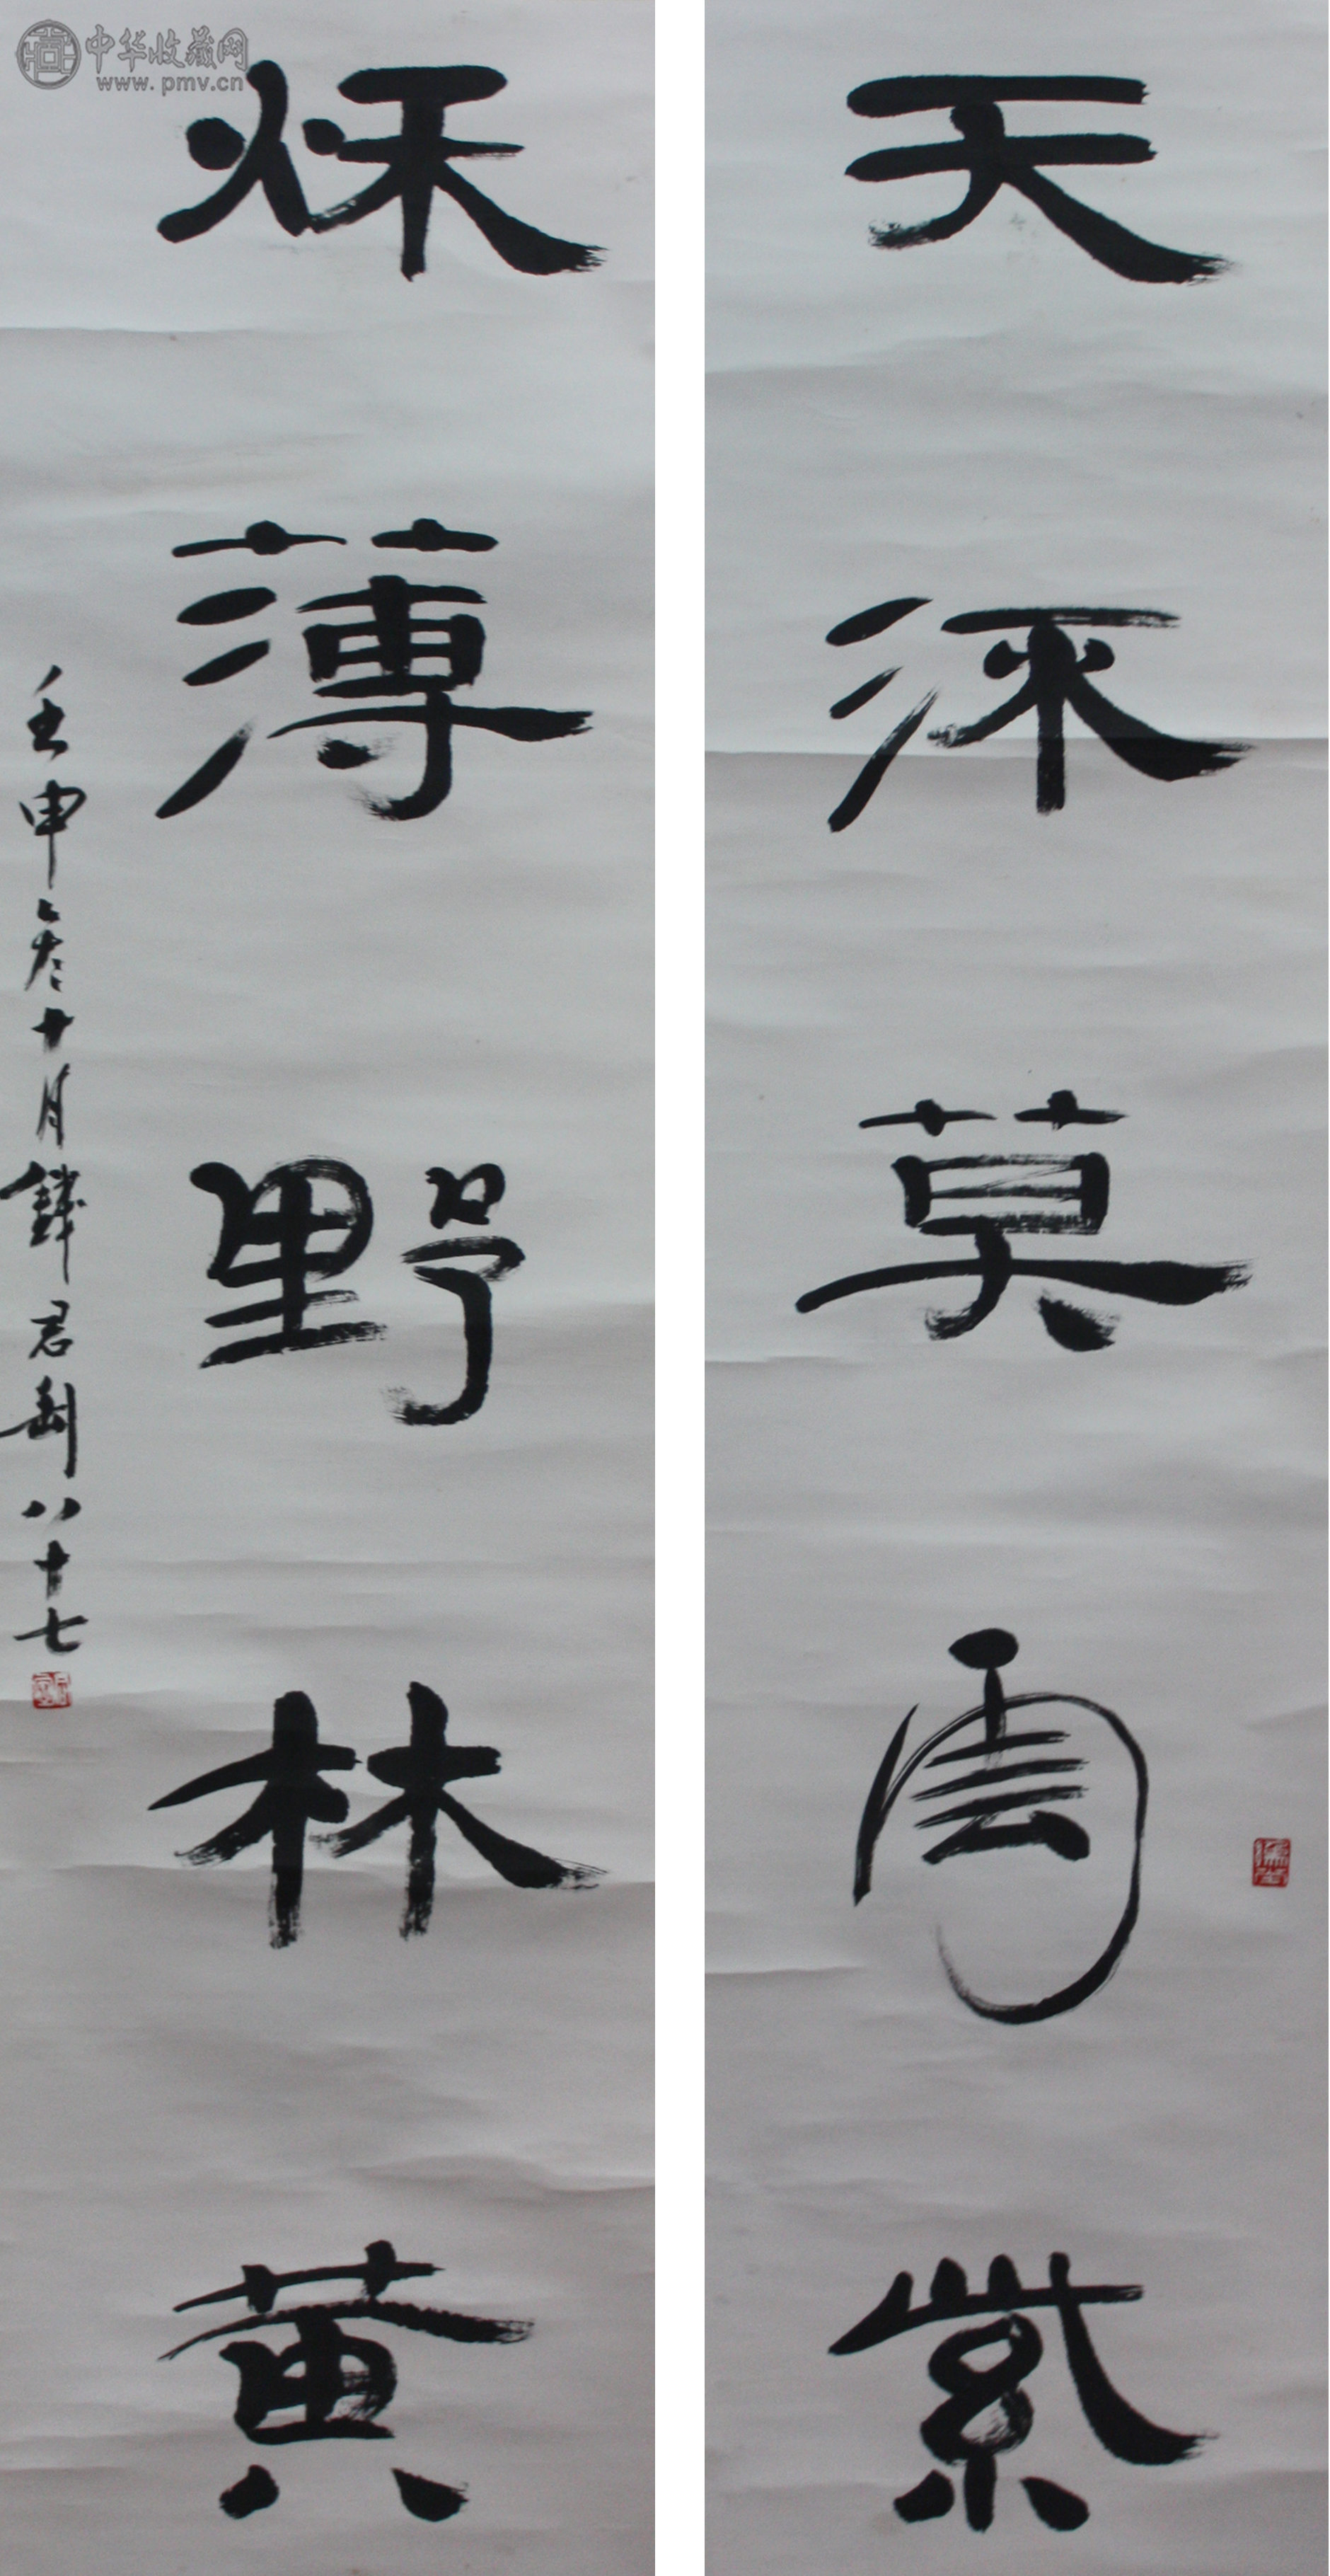 中华收藏网
www.pmv.cn
天深莫雲紫
秌薄野林黄
壬申冬十月錢君匋八十七